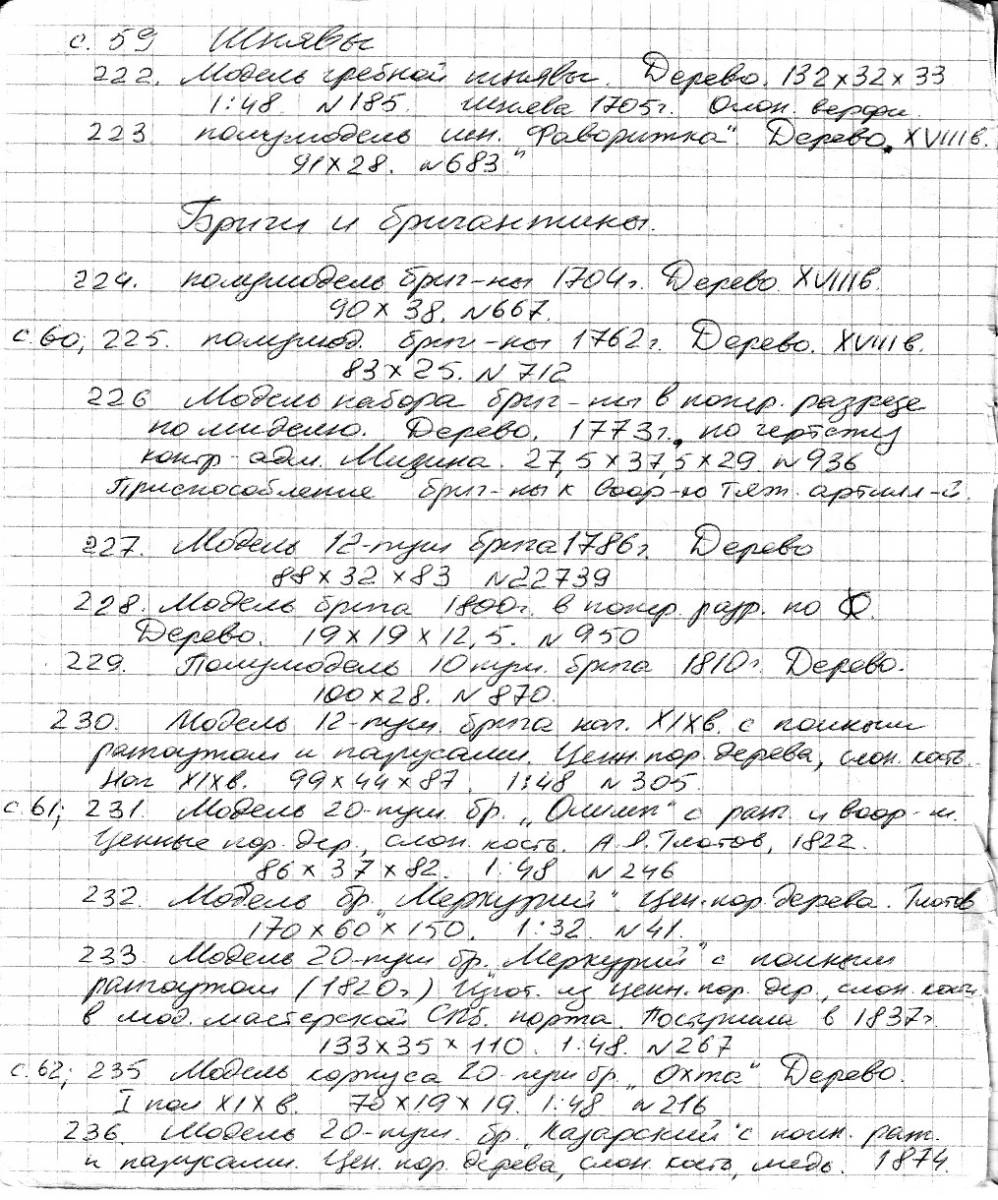 с. 59 Шнявы
222. Модель гребной шнявы. Дерево. 132×32×33
1:48 N185. шнява 1705г. Олон. верфи.
223 полумодель шн. „Фаворитка" Дерево. XVIIIв.
91×28. N683
Бриги и бригантины.
224. полумодель бриг-ны 1704г. Дерево XVIIIв.
90×38. N667.
с.60; 225. полумод. бриг-ны 1762г. Дерево. XVIIIв.
83×25. N712
226 Модель набора бриг-ны в попер. разрезе
по миделю. Дерево. 1773г. по чертежу
контр-адм. Мизина. 27,5×37,5×29. N936
Приспособление бриг-ны к воор-ю тяж. артилл-й.
227. Модель 12-пуш брига 1786г. Дерево
88×32×83 N22739
228. Модель брига 1800г. в попер. разр. по
Дерево. 19×19×12,5. N950
229. Полумодель 10 пуш. брига 1810г. Дерево.
100×28. N870.
230. Модель 12-пуш. брига нач. XIXв. с полным
рангоутом и парусами. Ценн. пор. дерева, слон. кость.
Нач XIXв. 99×44×87. 1:48 N305.
с.61; 231. Модель 20-пуш. бр. „Олимп" с ранг. и воор-м.
Ценные пор. дер., слон. кость. А.Я. Глотов, 1822.
86×37×82. 1:48 N246
232. Модель бр. „Меркурий". Цен. пор. дерева. Глотов
170×60×150. 1:32. N41.
233. Модель 20-пуш бр. „Меркурий" с полным
рангоутом (1820г) Изгот. из ценн. пор. дер., слон. кости
в мод. мастерской СПб. порта. Поступила в 1837г.
133×35×110. 1:48. N267
с.62; 235 Модель корпуса 20-пуш бр. „Охта" Дерево.
I пол XIX в. 70×19×19. 1:48 N216
236. Модель 20-пуш. бр. „Казарский" с полн. ранг.
и парусами. Цен. пор. дерева, слон. кость, медь. 1874.